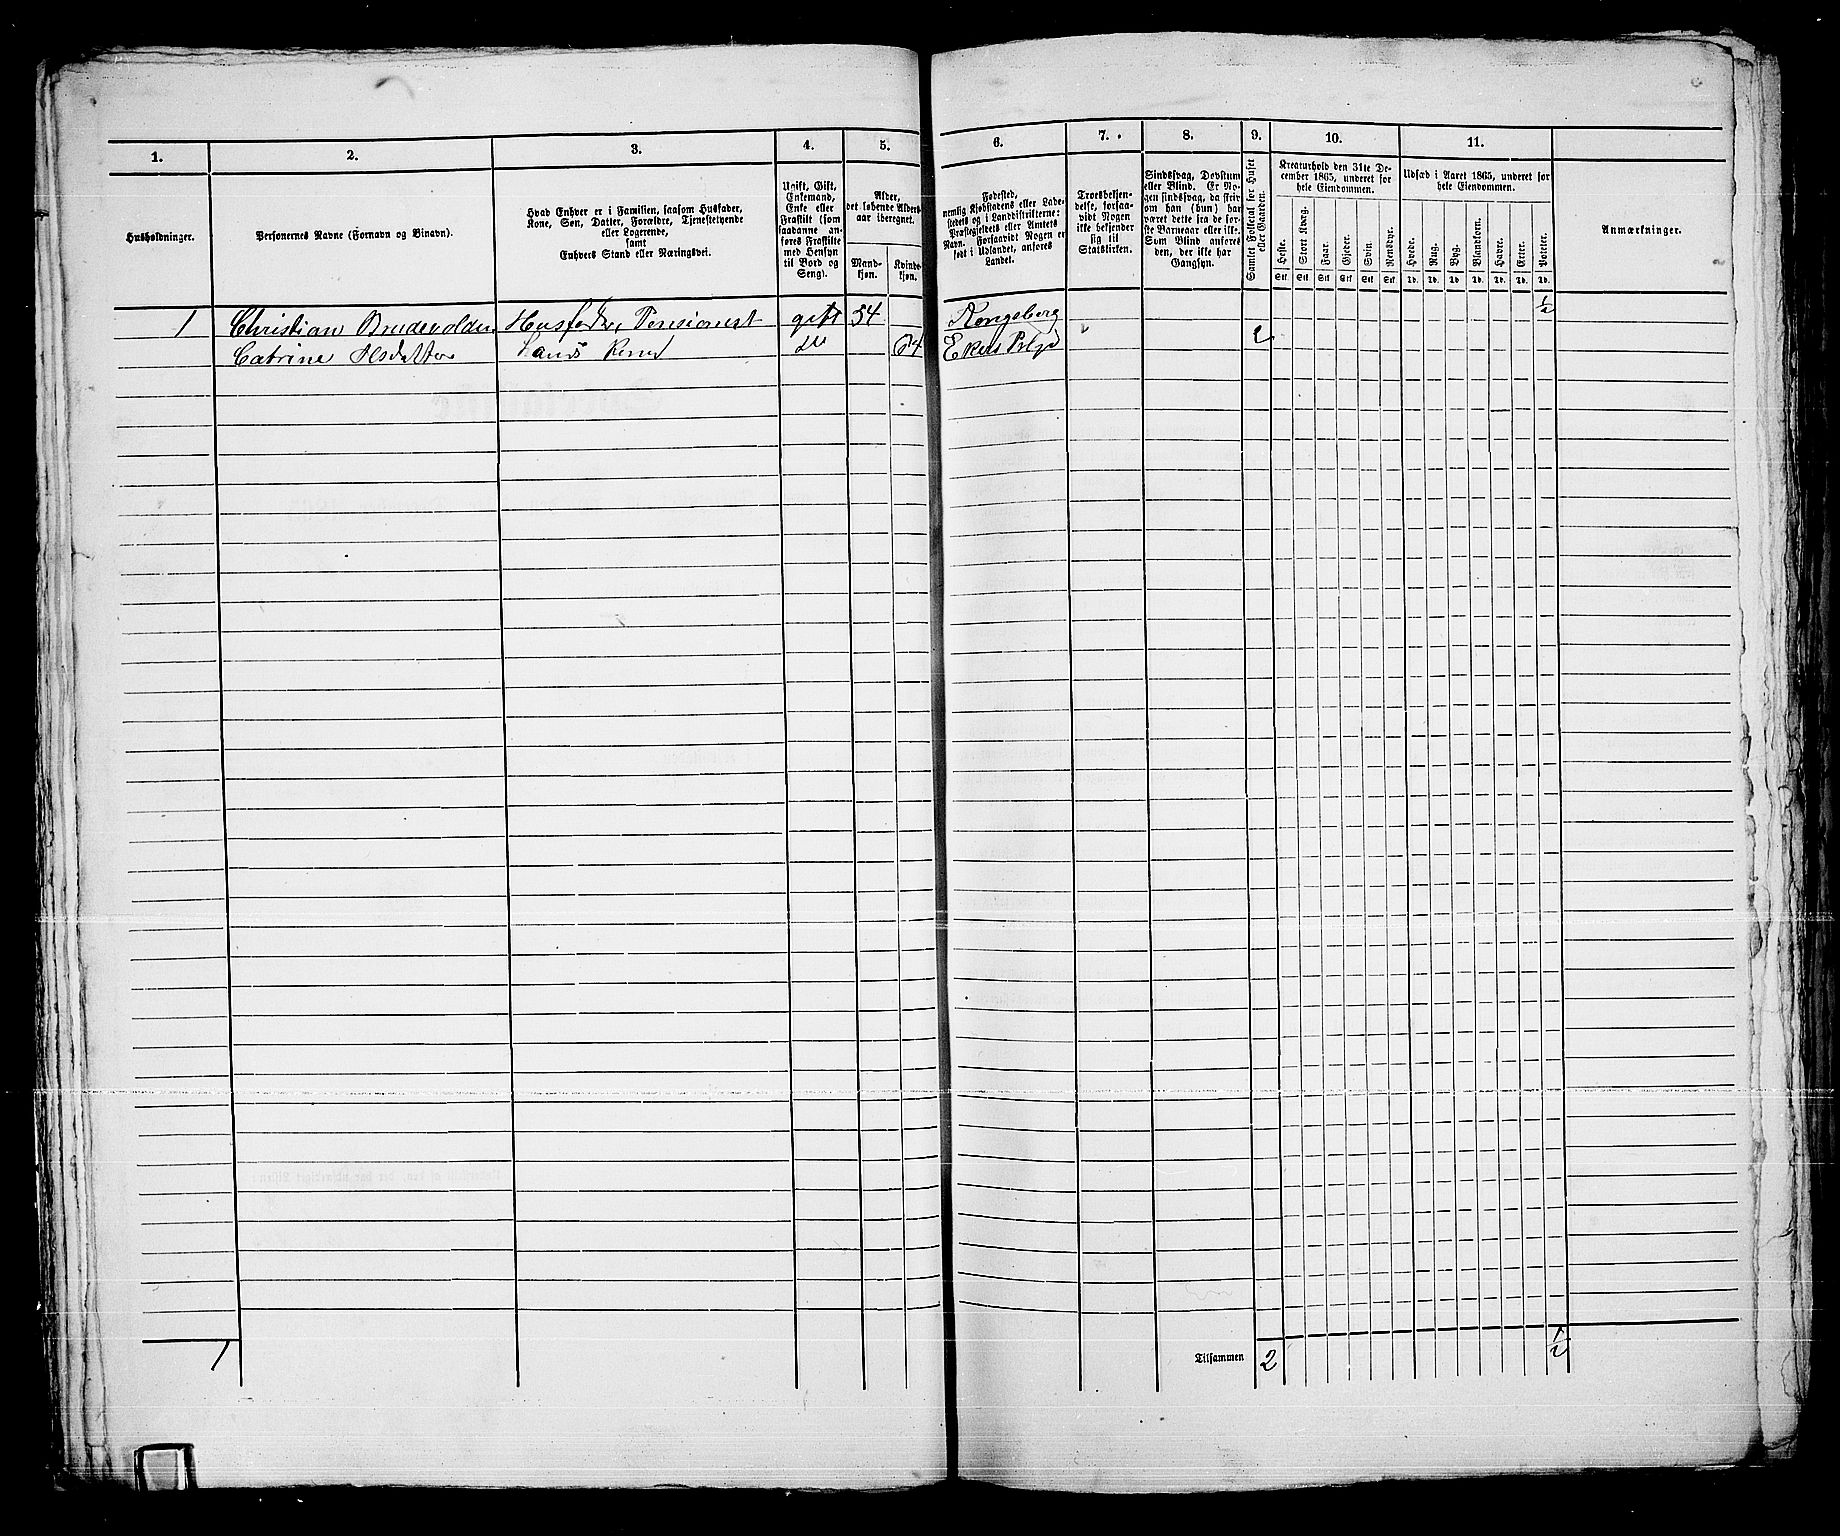 1.
2.
3.
4.
5.
6.
7.
8.
9.
10.
11.
Husholdninger.
Personernes Navne (Fornavn og Binavn).
Hvad Enhver er i Familien, saasom Husfader,
Kone, Søn, Datter, Forældre, Tjenestetyende
eller Logerende,
samt
Enhvers Stand eller Næringsvei.
Ugift, Gift,
Enkemand,
Enke eller
Fraskilt (som
saadanne an-
føres Fraskilte
med Hensyn
til Bord og
Seng).
Alder,
det løbende Alders-
aar iberegnet.
Mand-
kjøn.
Kvinde-
kjøn.
Fødested,
nemlig Kjøbstadens eller Lade-
stedets og i Landdistrikterne:
Præstegjeldets eller Amtets
Navn. Forsaavidt Nogen er
født i Udlandet, anføres
Landet.
Troesbekjen-
delse, forsaa-
vidt Nogen
ikke bekjender
sig til
Statskirken.
Sindssvag, Døvstum
eller Blind. Er No-
gen sindssvag, da skriv
om han (hun) har
været dette fra de før-
ste Barneaar eller ikke.
Som Blind anføres
den, der ikke har
Gangsyn.
Samlet Folketal for Huset
eller Gaarden.
Kreaturhold den 31te De-
cember 1865, underet for
hele Eiendommen.
Heste.
Stort Kvæg.
Faar.
Gjeder.
Svin.
Rensdyr.
Stk. Stk. Stk. Stk. Stk. Stk.
Udsæd i Aaret 1865, underet for
hele Eiendommen.
Hvede.
Rug.
Byg.
Blandkorn.
Havre.
Erter.
Poteter.
Td. Td. Td. Td. Td. Td. Td.
Anmærkninger.
1 Christian Husfader, Pensionist gift 54 Kongsberg 1/2
Catrine Hans Kone 64 2
1 Tilsammen 2 1/2